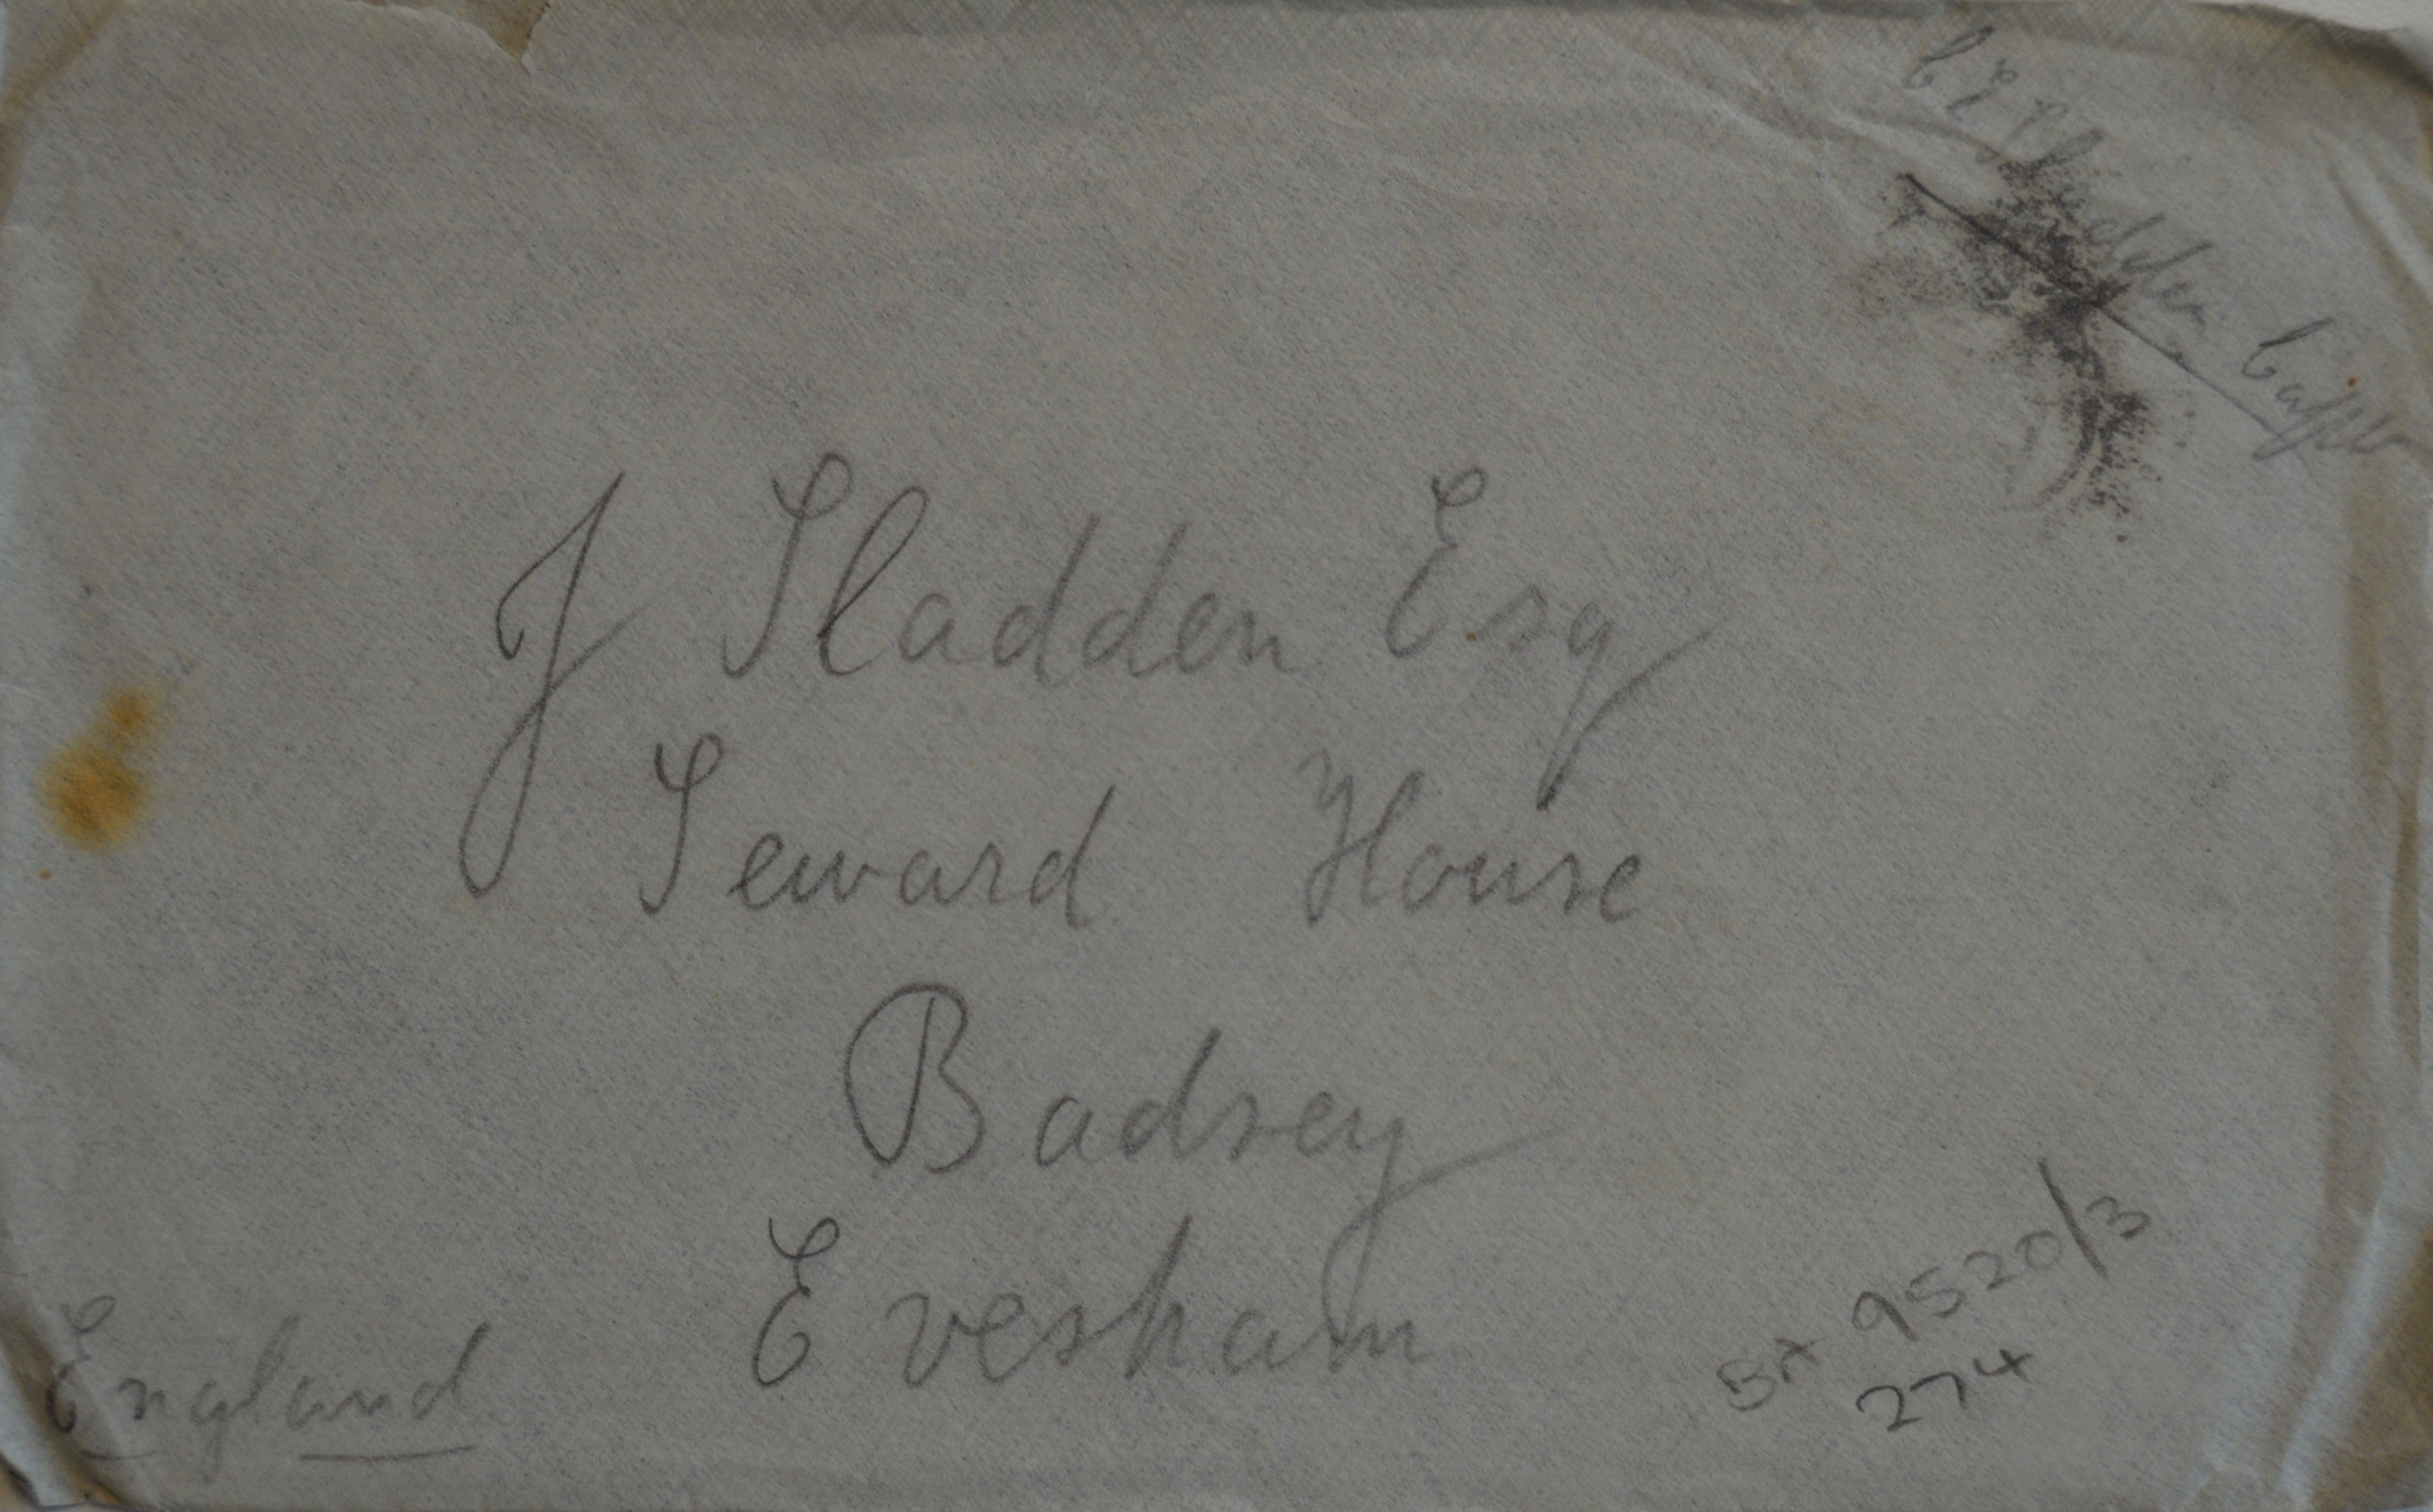 Sladden Capt
J Sladden Esq
Seward House
Badsey
Evesham
England
BA 9520/3
274